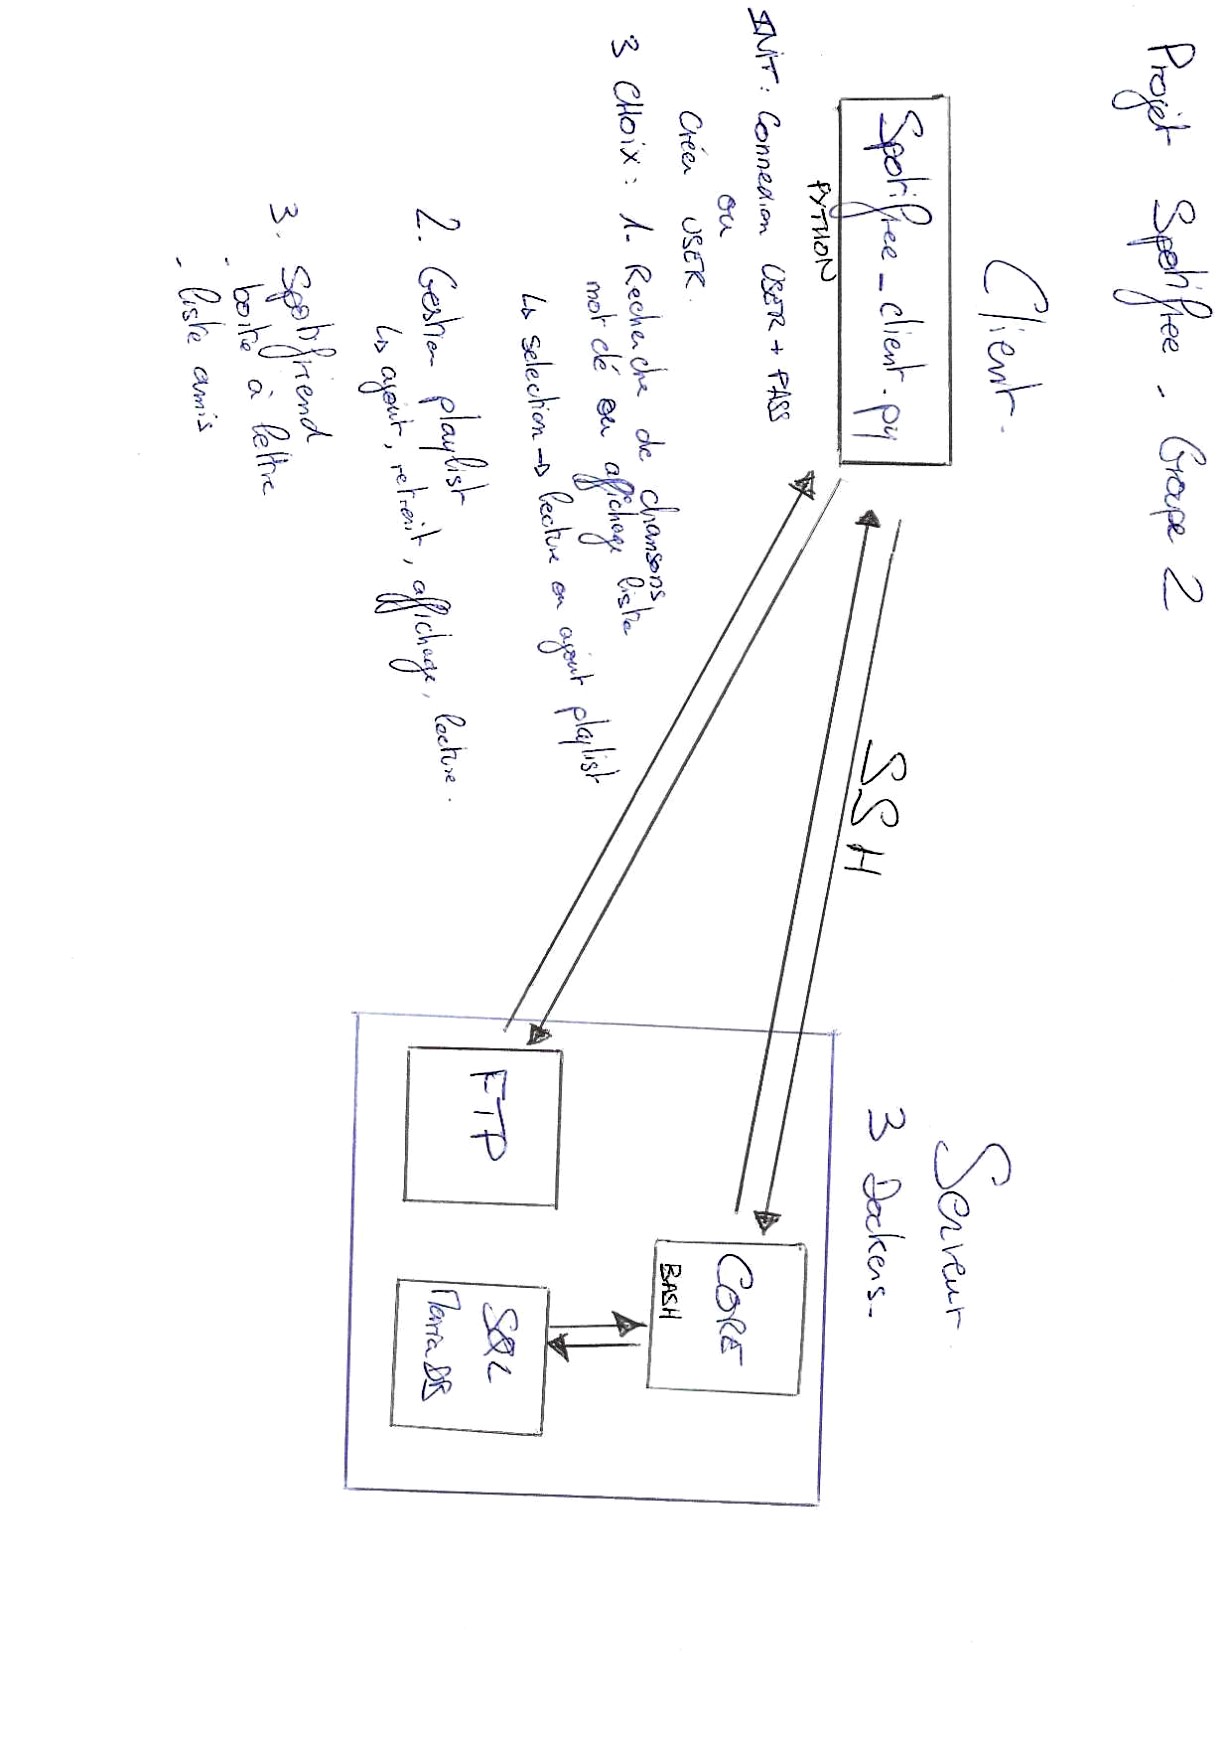 Projet Spotifree - Groupe 2
Client.
Spotifree_client.py
PYTHON
INIT : Connexion USER + PASS
ou
Créer USER.
3 CHOIX : 1- Recherche de chansons
mot clé ou affichage liste
↳ selection → lecture ou ajout playlist
2. Gestion playlist
↳ ajout, retrait, affichage, lecture.
3. Spotifriend
- boite à lettre
- liste amis
SSH
Serveur
3 Dockers.
CORE
BASH
FTP
SQL
MariaDB